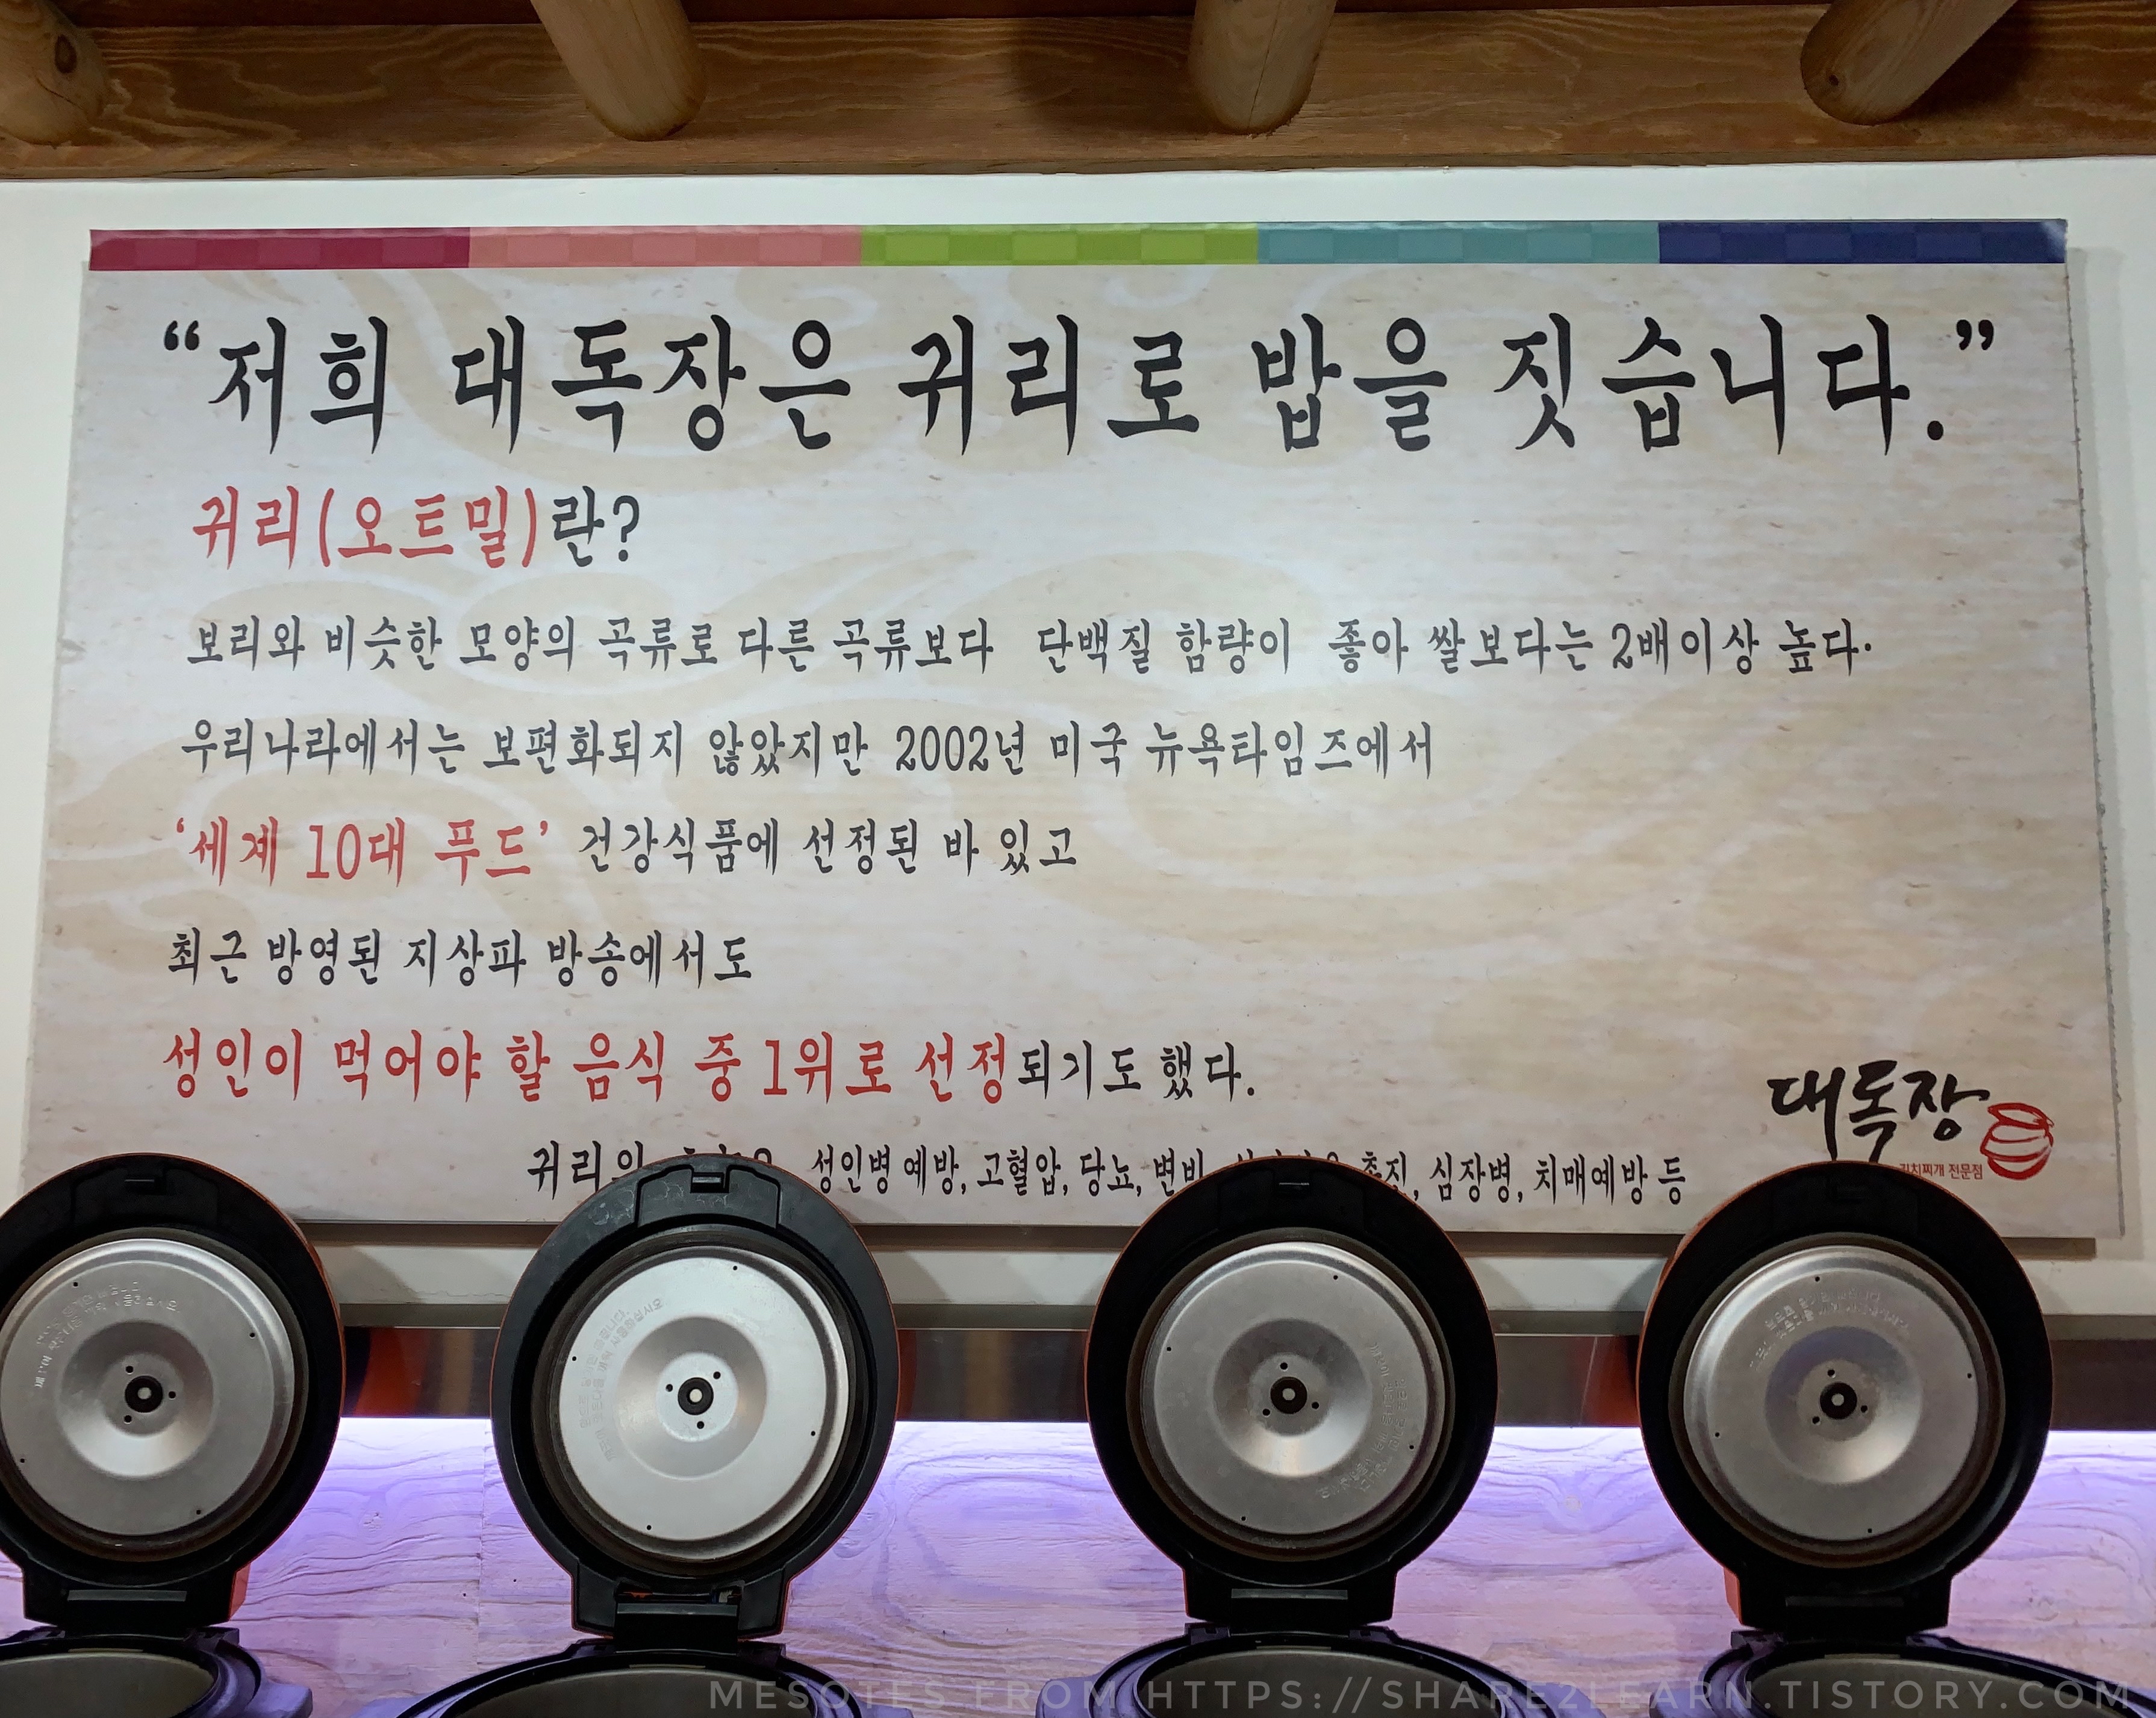 “저희 대독장은 귀리로 밥을 짓습니다.”
귀리(오트밀)란?
보리와 비슷한 모양의 곡류로 다른 곡류보다 단백질 함량이 좋아 쌀보다는 2배이상 높다.
우리나라에서는 보편화되지 않았지만 2002년 미국 뉴욕타임즈에서
‘세계 10대 푸드’ 건강식품에 선정된 바 있고
최근 방영된 지상파 방송에서도
성인이 먹어야 할 음식 중 1위로 선정되기도 했다.
귀리의 성인병 예방, 고혈압, 당뇨, 변비, 촉진, 심장병, 치매예방 등
대독장
김치찌개 전문점
MESOTES FROM HTTPS://SHARE2LEARN.TISTORY.COM